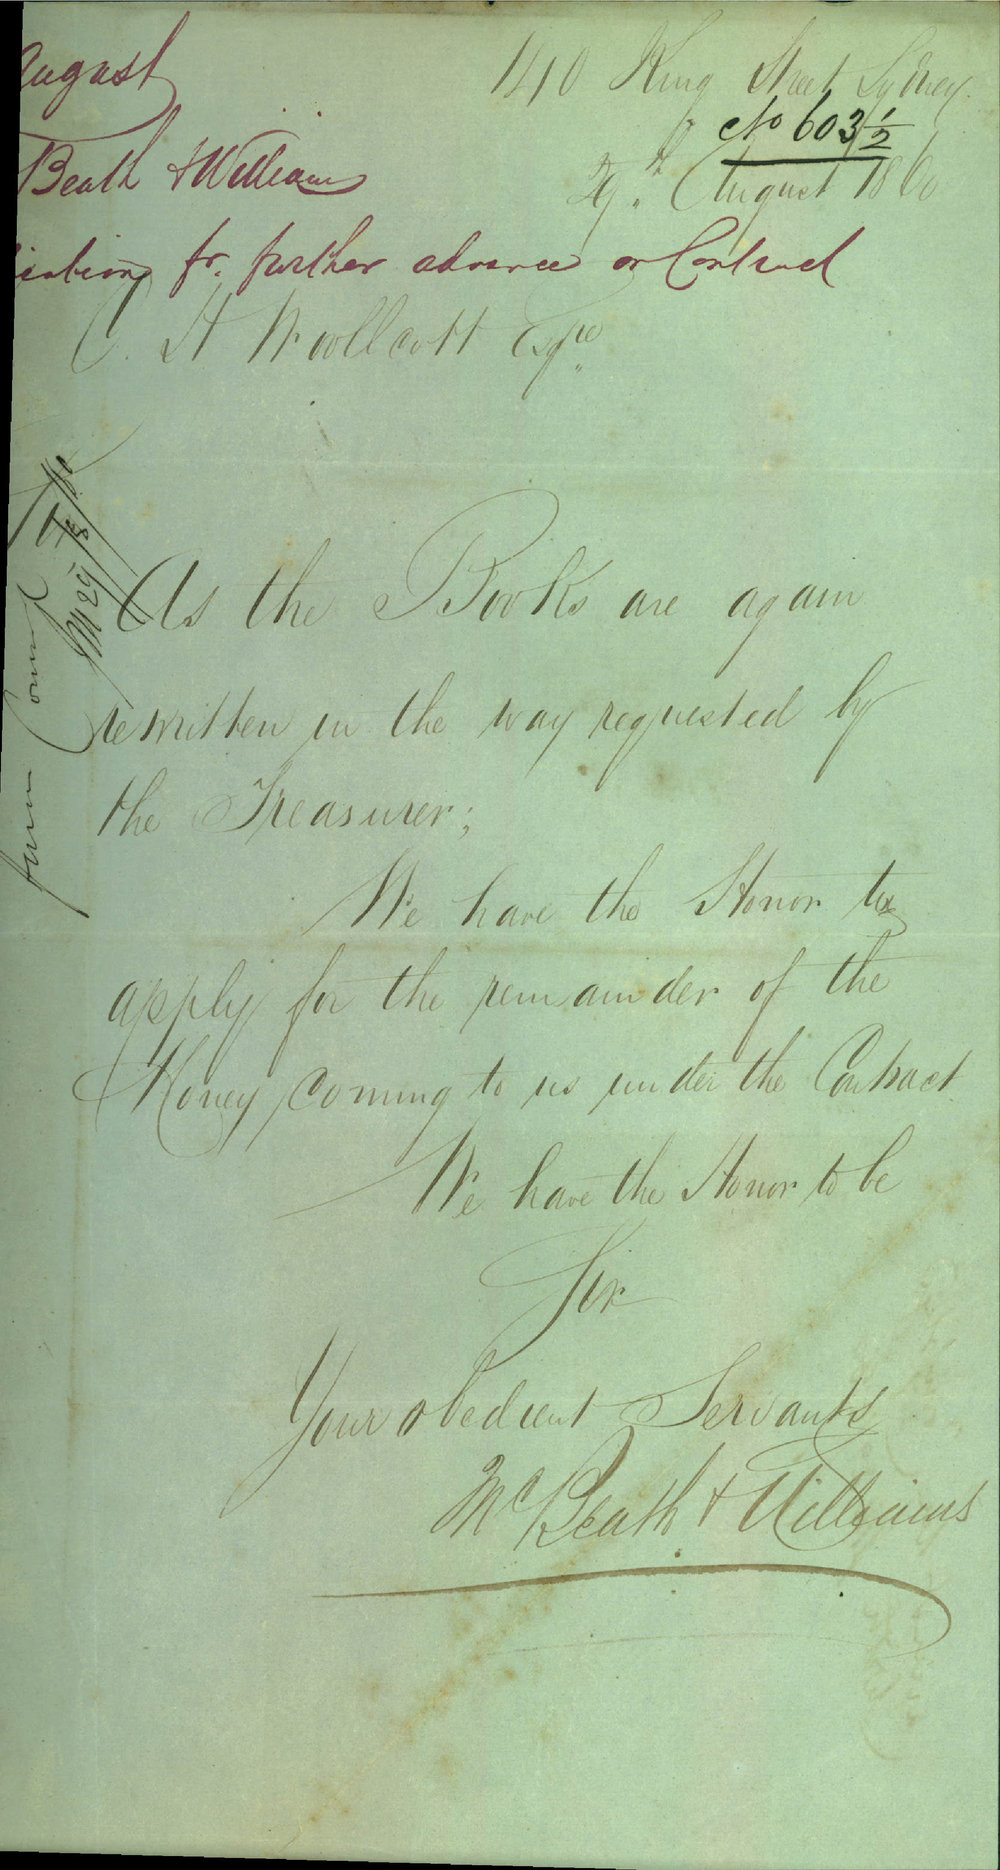 August
140 King Street Sydney
No 603 1/2
Beath & William
29th August 1860
for further advance on Contract
C. H Woollcott Esqre
As the Books are again
rewritten in the way requested by
the Treasurer;
We have the Honor to
apply for the remainder of the
Money coming to us under the Contract
We have the Honor to be
Sir
Your obedient Servants
McBeath & Williams